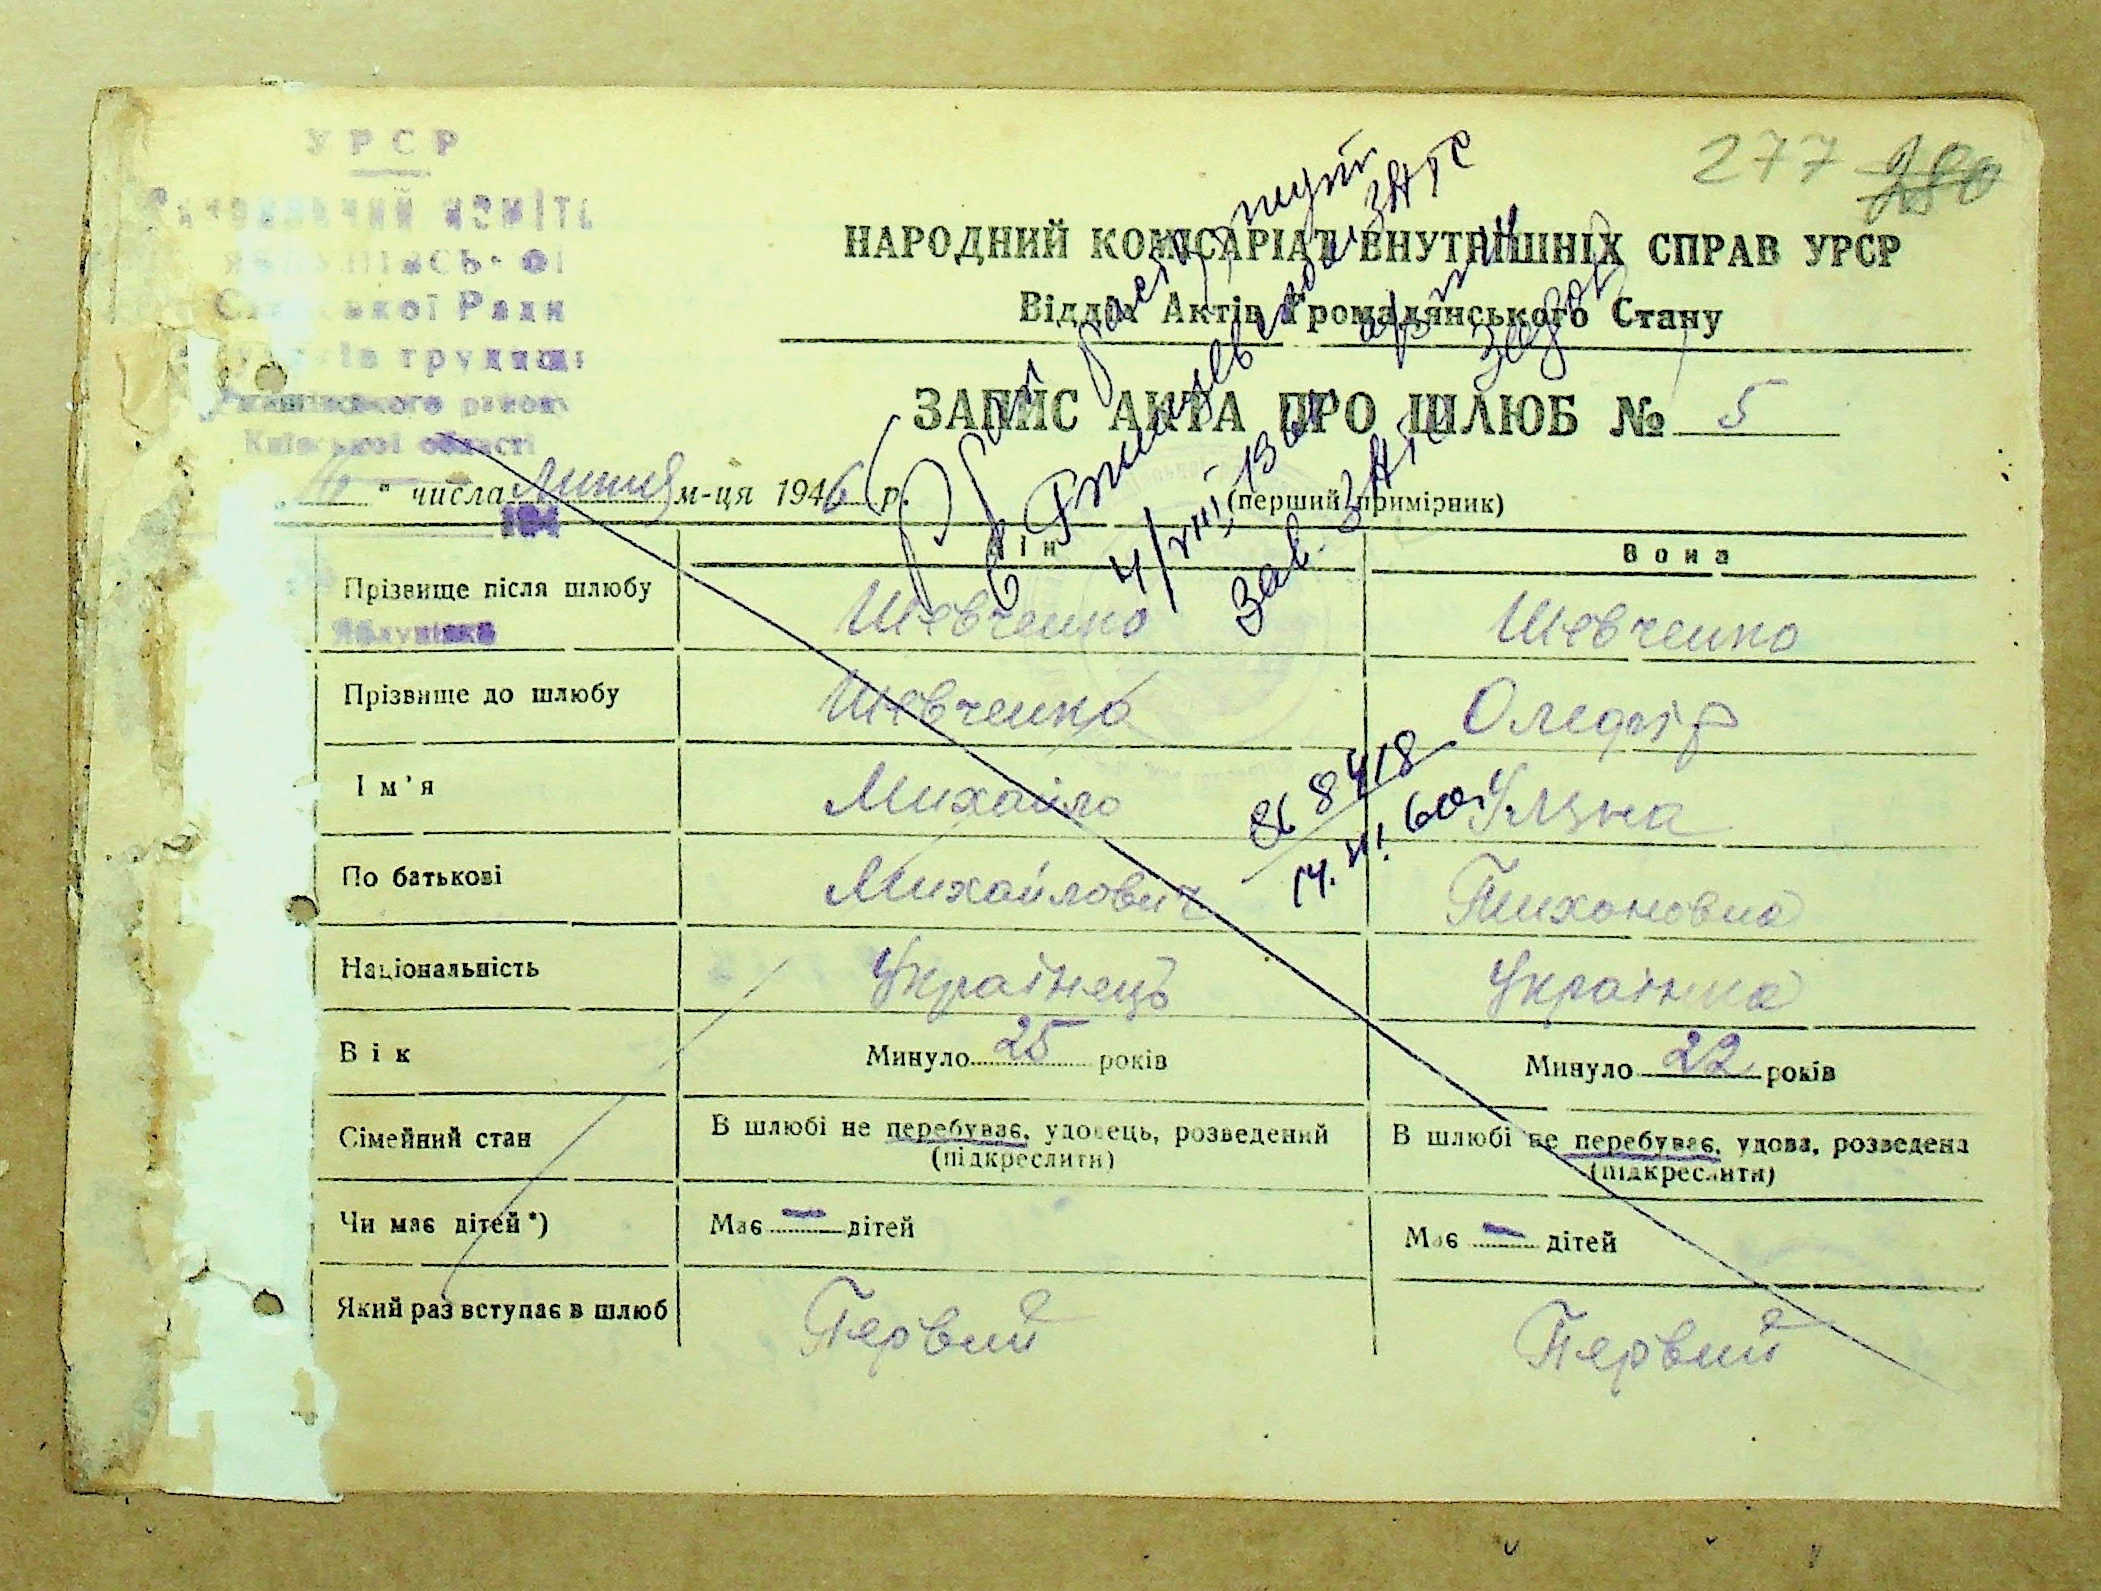 УРСР
Сільської Ради
трудящ
району
Київської області
277 280
НАРОДНИЙ КОМІСАРІАТ ВНУТРІШНІХ СПРАВ УРСР
Відділ Актів Громадянського Стану
ЗАПИС АКТА ПРО ШЛЮБ № 5
" числа липня м-ця 1946 р.
(перший примірник)
194
Він Вона
Прізвище після шлюбу Шевченко Шевченко
Яблунівка
Прізвище до шлюбу Шевченко Олефір
Ім'я Михайло Уляна
По батькові Михайлович Тихоновна
Національність Українець Українка
Вік Минуло 25 років Минуло 22 років
Сімейний стан В шлюбі не перебуває, удовець, розведений В шлюбі не перебуває, удова, розведена
(підкреслити) (підкреслити)
Чи має дітей*) Має — дітей Має — дітей
Який раз вступає в шлюб Первий Первий
Брак
в
ЗАГС
Зав. ЗАГС